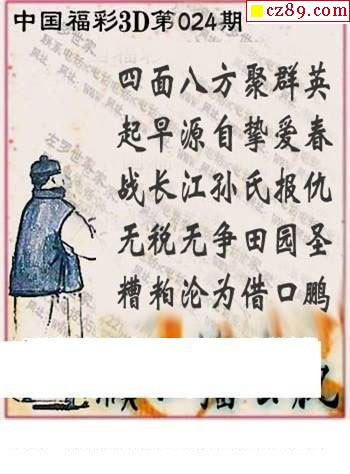 cz89.com
中国福彩3D第024期
四面八方聚群英
起早源自挚爱春
战长江孙氏报仇
无税无争田园圣
糟粕沦为借口鹏